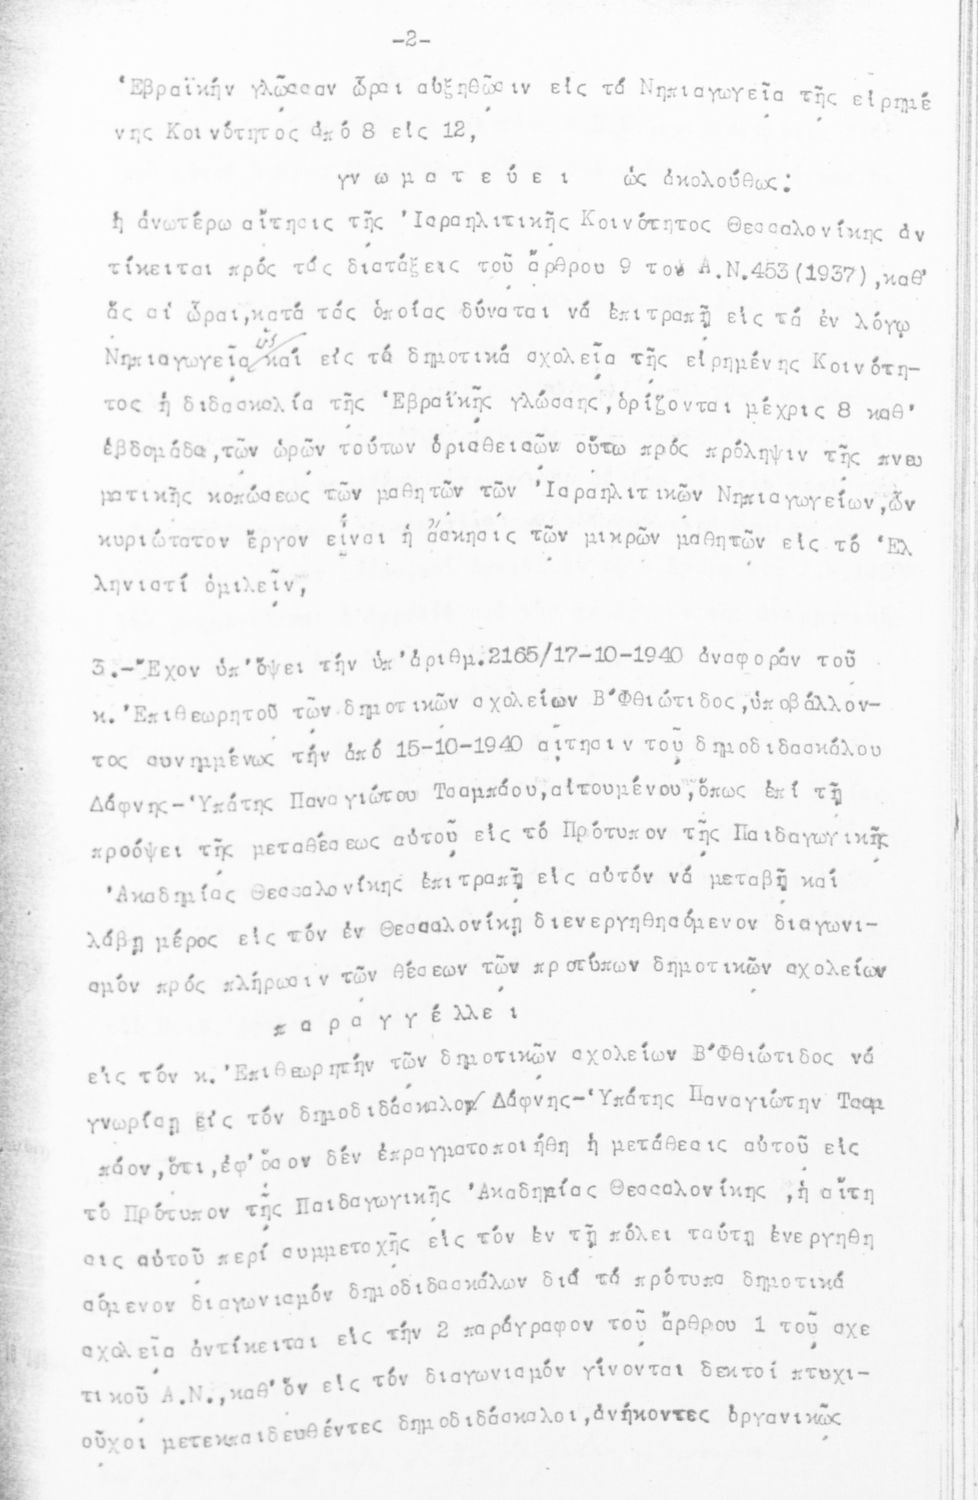 -2-
Ἑβραϊκήν γλῶσσαν ὧραι αὐξηθῶσιν εἰς τά Νηπιαγωγεῖα τῆς εἰρημέ
νης Κοινότητος ἀπό 8 εἰς 12,
γ ν ω μ α τ ε ύ ε ι   ὡς ἀκολούθως:
ἡ ἀνωτέρω αἴτησις τῆς Ἰσραηλιτικῆς Κοινότητος Θεσσαλονίκης ἀν
τίκειται πρός τάς διατάξεις τοῦ ἄρθρου 9 τοῦ Α.Ν.453(1937),καθ'
ἅς αἱ ὧραι,κατά τάς ὁποίας δύναται νά ἐπιτραπῇ εἰς τά ἐν λόγῳ
Νηπιαγωγεῖα ὡς καί εἰς τά δημοτικά σχολεῖα τῆς εἰρημένης Κοινότη-
τος ἡ διδασκαλία τῆς Ἑβραϊκῆς γλώσσης,ὁρίζονται μέχρις 8 καθ'
ἑβδομάδα,τῶν ὡρῶν τούτων ὁρισθεισῶν οὕτω πρός πρόληψιν τῆς πνευ
ματικῆς κοπώσεως τῶν μαθητῶν τῶν Ἰσραηλιτικῶν Νηπιαγωγείων,ὧν
κυριώτατον ἔργον εἶναι ἡ ἄσκησις τῶν μικρῶν μαθητῶν εἰς τό Ἑλ
ληνιστί ὁμιλεῖν,
3.-Ἔχον ὑπ'ὄψει τήν ὑπ'ἀριθμ.2165/17-10-1940 ἀναφοράν τοῦ
κ.Ἐπιθεωρητοῦ τῶν δημοτικῶν σχολείων Β'Φθιώτιδος,ὑποβάλλον-
τος συνημμένως τήν ἀπό 15-10-1940 αἴτησιν τοῦ δημοδιδασκάλου
Δάφνης-Ὑπάτης Παναγιώτου Τσαμπάου,αἰτουμένου,ὅπως ἐπί τῇ
προόψει τῆς μεταθέσεως αὐτοῦ εἰς τό Πρότυπον τῆς Παιδαγωγικῆς
Ἀκαδημίας Θεσσαλονίκης ἐπιτραπῇ εἰς αὐτόν νά μεταβῇ καί
λάβῃ μέρος εἰς τόν ἐν Θεσσαλονίκῃ διενεργηθησόμενον διαγωνι-
σμόν πρός πλήρωσιν τῶν θέσεων τῶν προτύπων δημοτικῶν σχολείων
π α ρ α γ γ έ λλε ι
εἰς τόν κ.Ἐπιθεωρητήν τῶν δημοτικῶν σχολείων Β'Φθιώτιδος νά
γνωρίσῃ εἰς τόν δημοδιδάσκαλον Δάφνης-Ὑπάτης Παναγιώτην Τσαμ
πάον,ὅτι,ἐφ'ὅσον δέν ἐπραγματοποιήθη ἡ μετάθεσις αὐτοῦ εἰς
τό Πρότυπον τῆς Παιδαγωγικῆς Ἀκαδημίας Θεσσαλονίκης ,ἡ αἴτη
σις αὐτοῦ περί συμμετοχῆς εἰς τόν ἐν τῇ πόλει ταύτῃ ἐνεργηθη
σόμενον διαγωνισμόν δημοδιδασκάλων διά τά πρότυπα δημοτικά
σχολεῖα ἀντίκειται εἰς τήν 2 παράγραφον τοῦ ἄρθρου 1 τοῦ σχε
τικοῦ Α.Ν.,καθ'ὅν εἰς τόν διαγωνισμόν γίνονται δεκτοί πτυχι-
οῦχοι μετεκπαιδευθέντες δημοδιδάσκαλοι,ἀνήκοντες ὀργανικῶς